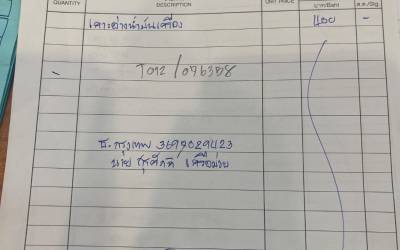 QUANTITY DESCRIPTION UNIT PRICE บาท/Baht ส.ต./Stg.
เคาะอ่างน้ำมันเครื่อง -
T072/076388
ธ. กรุงเทพ 3697029423
นาย